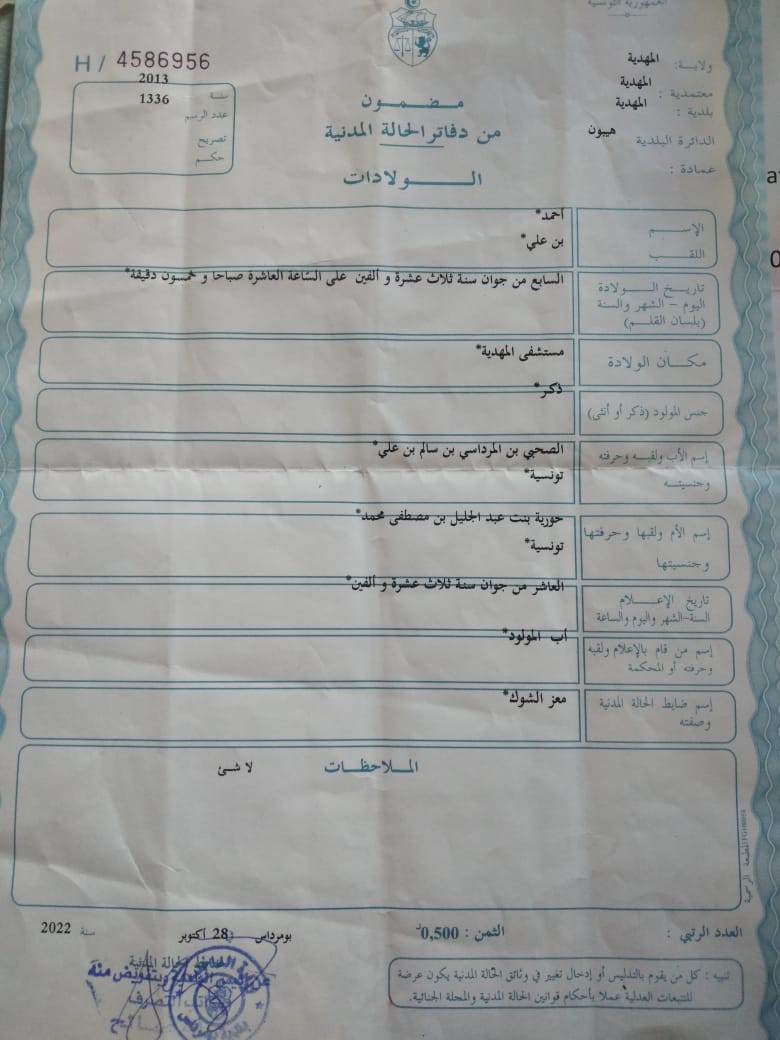 الجمهورية التونسية
H / 4586956
ولاية: المهدية
معتمدية : المهدية
بلدية : المهدية
الدائرة البلدية هيبون
عمادة :
سنة 2013
عدد الرسم 1336
تصريح
حكم
مضمون
من دفاتر الحالة المدنية
الولادات
الإسم
أحمد*
اللقب
بن علي*
تاريخ الولادة
اليوم - الشهر والسنة
(بلسان القلم)
السابع من جوان سنة ثلاث عشرة و ألفين على الساعة العاشرة صباحا و خمسون دقيقة*
مكان الولادة
مستشفى المهدية*
جنس المولود (ذكر أو أنثى)
ذكر*
إسم الأب ولقبه وحرفته
وجنسيته
الصحبي بن المرداسي بن سالم بن علي*
تونسية*
إسم الأم ولقبها وحرفتها
وجنسيتها
حورية بنت عبد الجليل بن مصطفى محمد*
تونسية*
تاريخ الإعلام
السنة-الشهر واليوم والساعة
العاشر من جوان سنة ثلاث عشرة و ألفين*
إسم من قام بالإعلام ولقبه
وحرفته أو المحكمة
أب المولود*
إسم ضابط الحالة المدنية
وصفته
معز الشوك*
الملاحظات
لا شئ
المطبعة الرسمية
العدد الرتبي :
الثمن : 0,500د
بومرداس في 28 أكتوبر سنة 2022
ضابط الحالة المدنية
وبتفويض منه
تنبيه : كل من يقوم بالتدليس أو إدخال تغيير في وثائق الحالة المدنية يكون عرضة
للتتبعات العدلية عملا بأحكام قوانين الحالة المدنية والمجلة الجنائية.